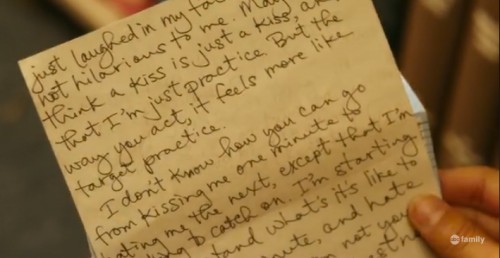 just laughed in my fa
not hilarious to me. May
think a kiss is just a kiss, an
that I'm just practice. But the
way you act, it feels more like
target practice.
I don't know how you can go
from kissing me one minute to
hating me the next, except that I'm
to catch on. I'm starting
tand what's it's like to
ute, and hate
not you
abc family